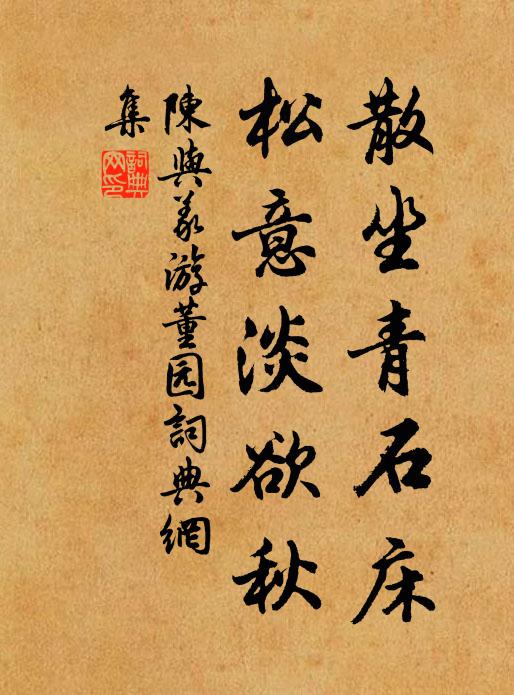 散坐青石床
松意淡欲秋
陳與義游董园詞典網
集
詞典網印